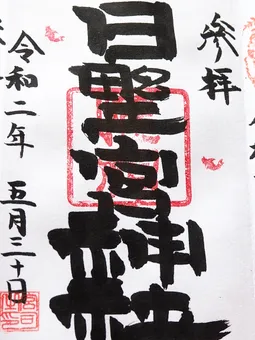 參拝
日墅宮神社
令和二年 五月三十日